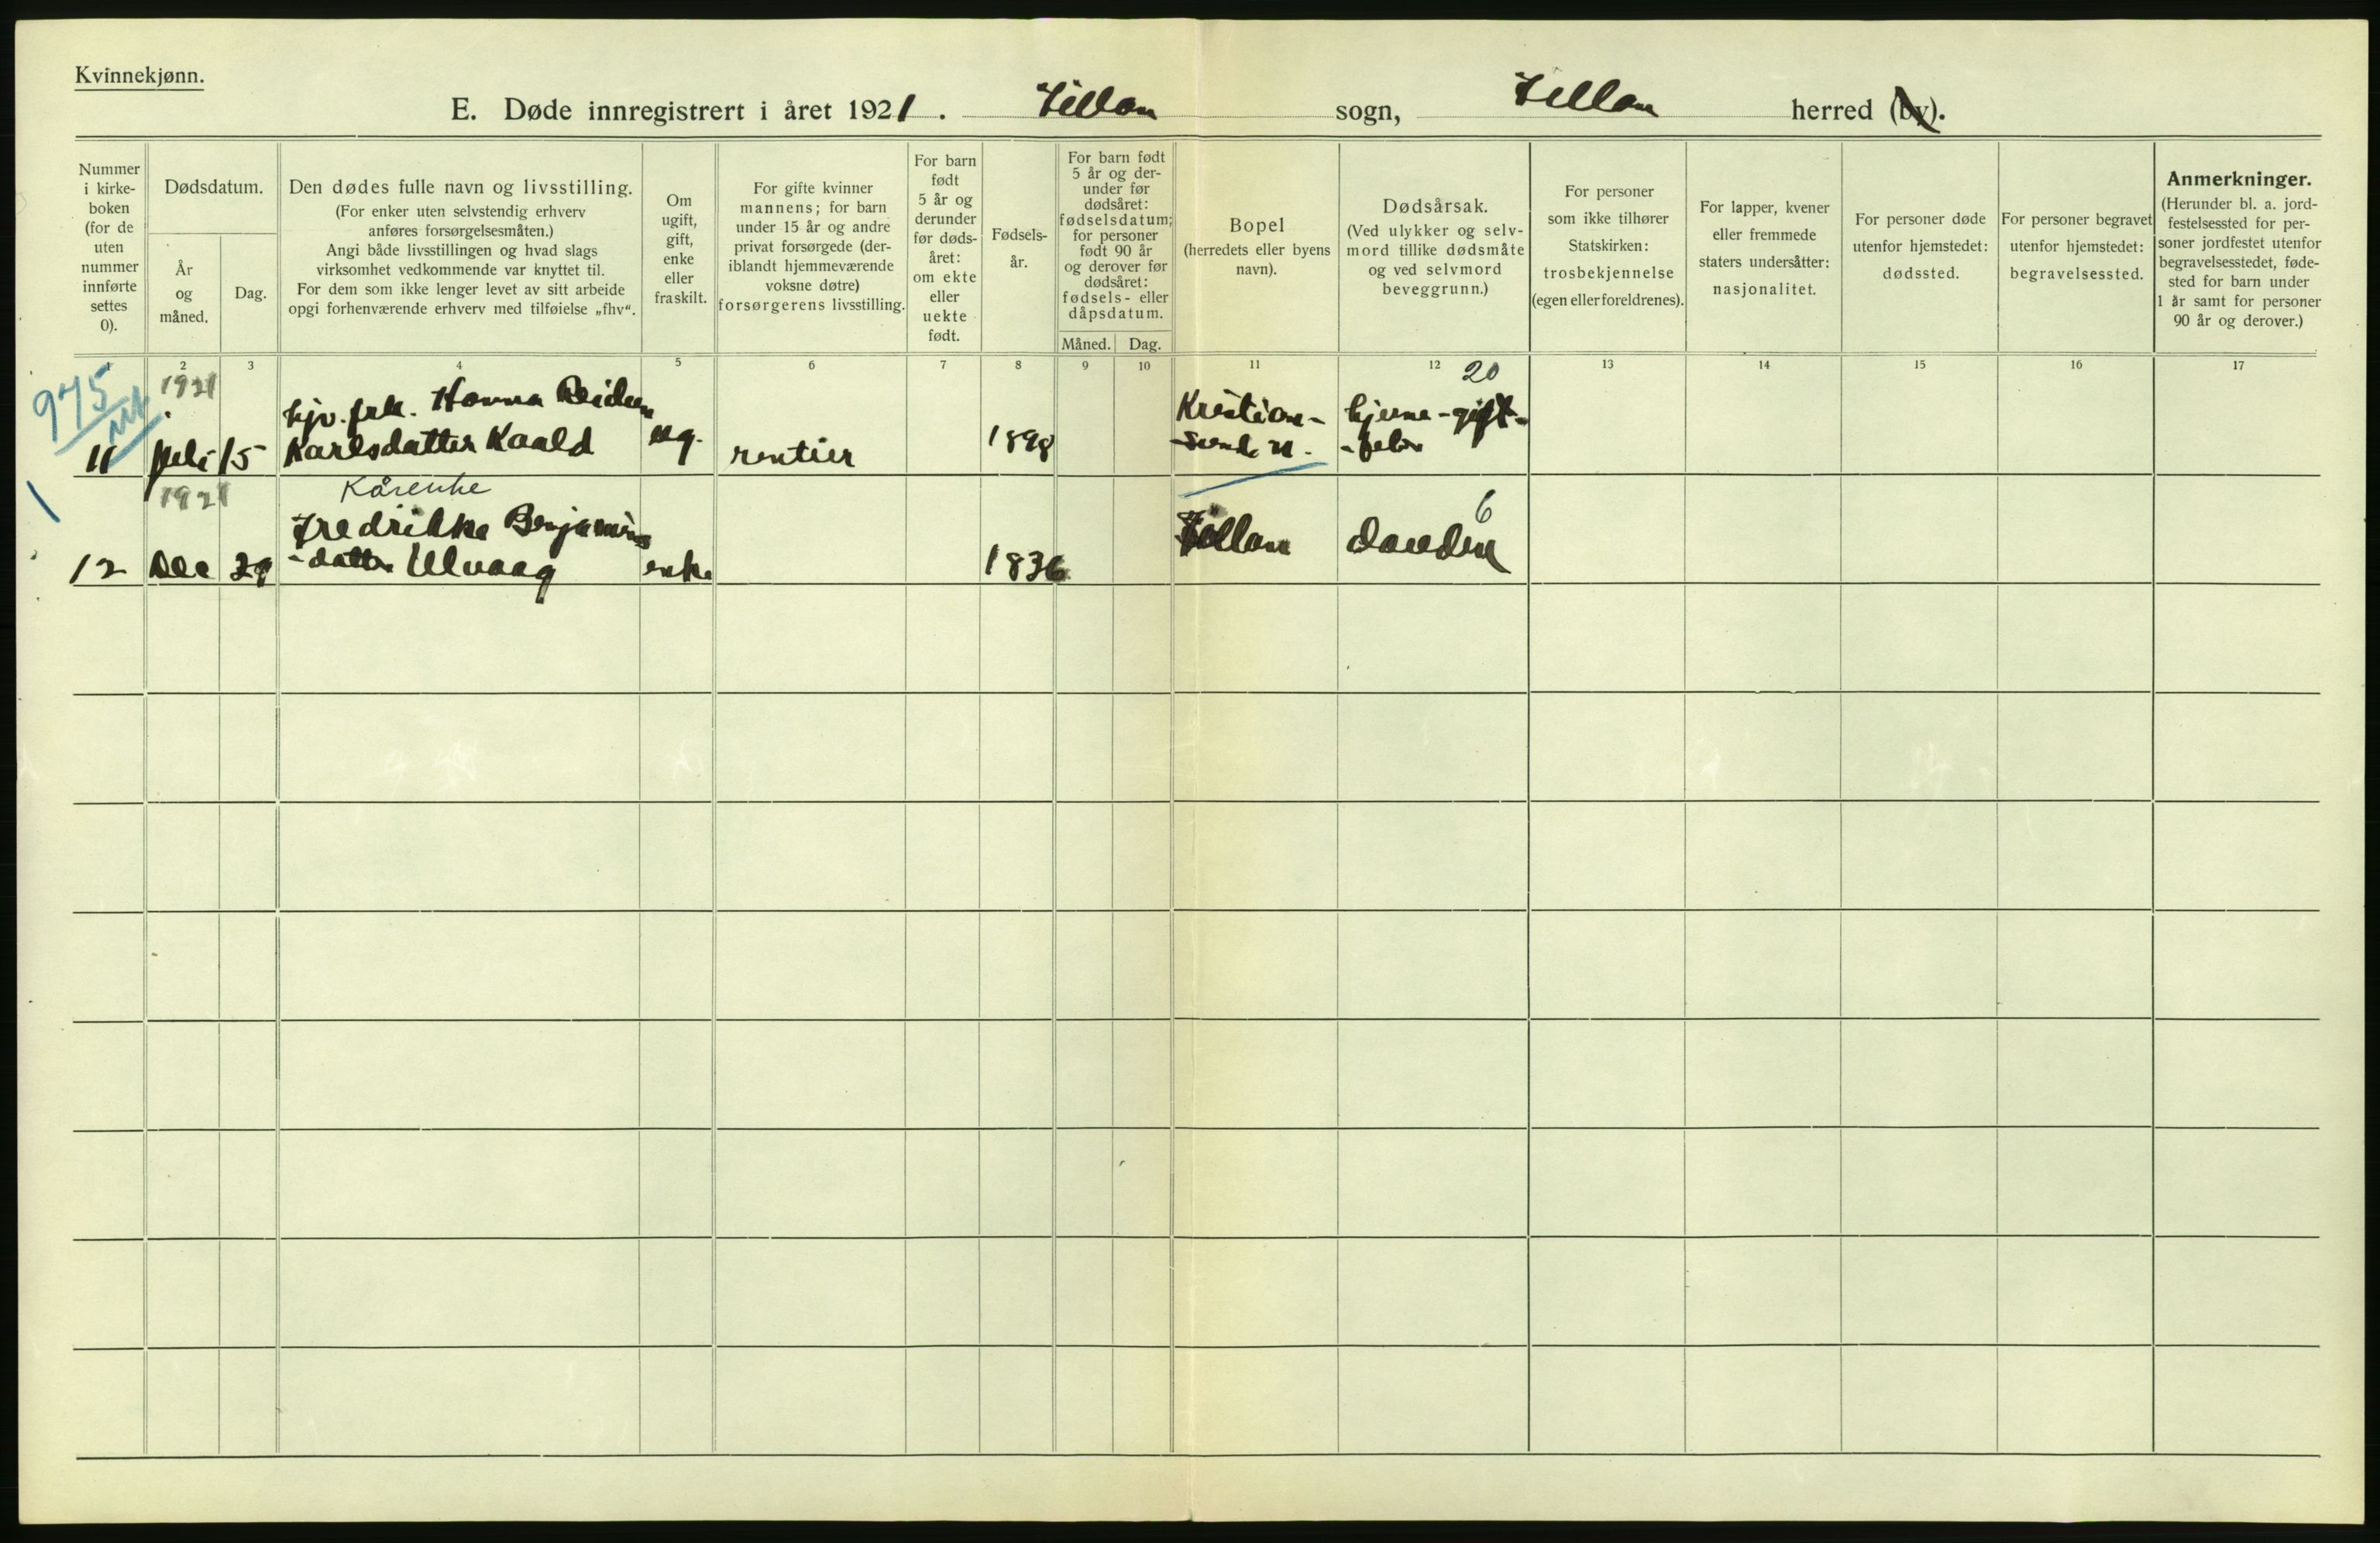 Kvinnekjønn.
E. Døde innregistrert i året 1921. Fillan sogn, Fillan herred (by).
Nummer i kirke-
boken
(for de
uten
nummer
innførte
settes
0).
Dødsdatum.
År
og
måned.
Dag.
Den dødes fulle navn og livsstilling.
(For enker uten selvstendig erhverv
anføres forsørgelsesmåten.)
Angi både livsstillingen og hvad slags
virksomhet vedkommende var knyttet til.
For dem som ikke lenger levet av sitt arbeide
opgi forhenværende erhverv med tilføielse „fhv“.
Om
ugift,
gift,
enke
eller
fraskilt.
For gifte kvinner
mannens; for barn
under 15 år og andre
privat forsørgede (der-
iblandt hjemmeværende
voksne døtre)
forsørgerens livsstilling.
For barn
født
5 år og
derunder
før døds-
året:
om ekte
eller
uekte
født.
Fødsels-
år.
For barn født
5 år og der-
under før
dødsåret:
fødselsdatum;
for personer
født 90 år
og derover før
dødsåret:
fødsels- eller
dåpsdatum.
Måned. Dag.
Bopel
(herredets eller byens
navn).
Dødsårsak.
(Ved ulykker og selv-
mord tillike dødsmåte
og ved selvmord
beveggrunn.)
For personer
som ikke tilhører
Statskirken:
trosbekjennelse
(egen eller foreldrenes).
For lapper, kvener
eller fremmede
staters undersåtter:
nasjonalitet.
For personer døde
utenfor hjemstedet:
dødssted.
For personer begravet
utenfor hjemstedet:
begravelsessted.
Anmerkninger.
(Herunder bl. a. jord-
festelsessted for per-
soner jordfestet utenfor
begravelsesstedet, føde-
sted for barn under
1 år samt for personer
90 år og derover.)
2 3 4 5 6 7 8 9 10 11 12 13 14 15 16 17
975
1921
20
hjv. frk. Hanna
Kristian- hjerne-gift-
11 juli 15 Karlsdatter Kaald ug. rentier 1898 -sund N.
1
1921 Kårenke
6
Fredrikke Benjamins
12 Dec 29 -datter Ulvaag enke 1836 Fillan